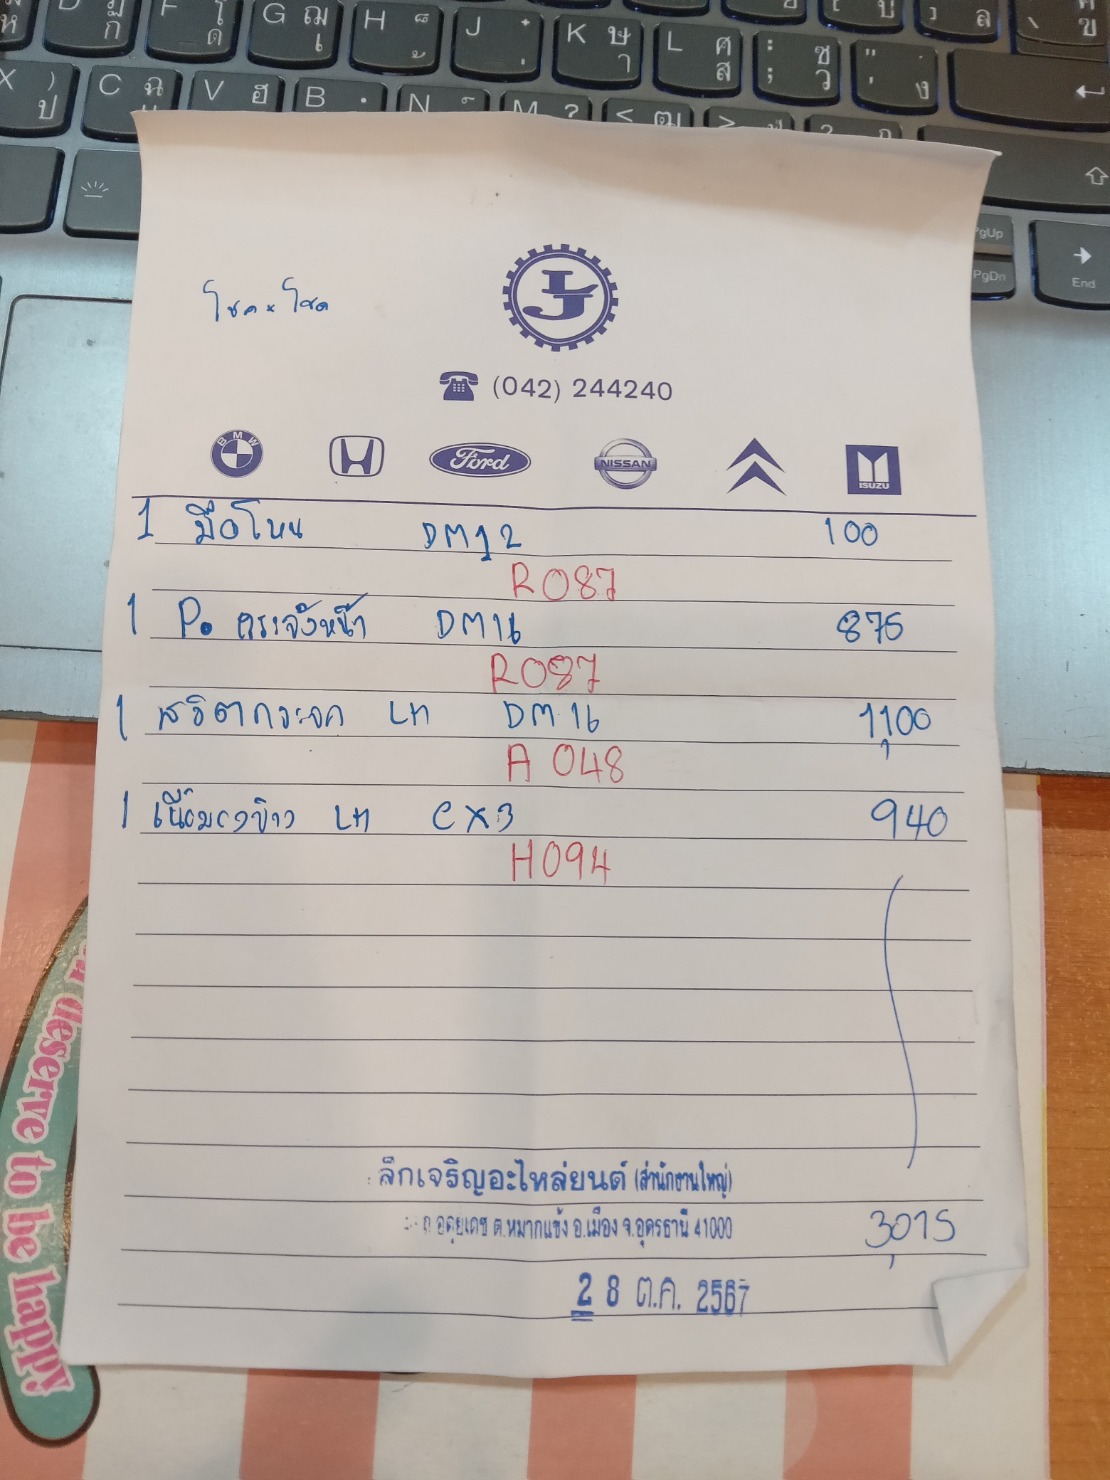 D ม ก F โ ด G ฌ เ H ็ ้ J ๋ ่ K ษ า L ศ ส : ; ซ ว " ' . ง
X ) ป C ฉ แ V ฮ B N M ? < ฒ >
PgUp
PgDn
End
โชค x โชค
LJ
(042) 244240
BMW
Ford
NISSAN
ISUZU
1 มือโหน DM12 100
R087
1 P. กระจังหน้า DM16 875
R087
1 สวิตกระจก LH DM16 1,100
A 048
1 LH CX3 940
H094
ล็กเจริญอะไหล่ยนต์ (สำนักงานใหญ่)
ถ.อดุยเดช ต.หมากแข้ง อ.เมือง จ.อุดรธานี 41000
3,015
28 ต.ค. 2567
deserve to be happy